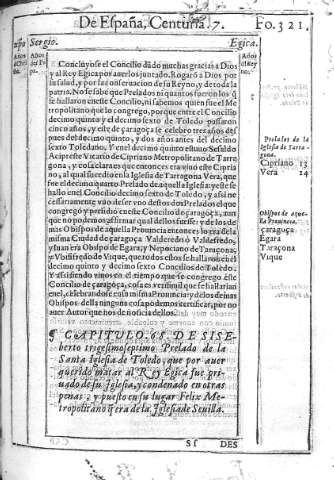 De España, Centuria. 7. Fo. 321.
Sergio. Egica.
Concluyose el Concilio dãdo muchas gracias a Dios
y al Rey Egica por auerlos juntado. Rogarõ a Dios por
su salud, y por las de su Reyno, y de toda la
patria. No se sabe que Prelados ni quantos fueron los q̃
se hallaron en este Concilio, ni sabemos quien fue el Me
tropolitano que lo congrego, porque entre el Concilio
decimo quinto y el decimo sexto de Toledo passaron
cinco años, y este de çaragoça se celebro tres años des
pues del decimo quinto, y dos años antes del decimo
sexto Toledano. Y en el decimo quinto
Acipreste Vicario de Cipriano Metropolitano de Tarra
gona, y viuia entonces este Cipria
no, al qual sucedio en la Iglesia de Tarragona Vera, que
fue el decimo quarto Prelado de aquella Iglesia: y este se
hallo en el Concilio decimo sexto de Toledo, y assi ne
cessariamente vno destos dos Prelados el que
congregó y presidio en este Concilio de çaragoça, aun
que no podemos affirmar qual dellos fuesse: y de los de
mas Obispos de aquella Prouincia entonces lo era de la
misma Ciudad de çaragoça Valderedo
y Iuan era Obispo de Egara; y Nepociano de Taraçona;
y Vvisifredo de Vique, que todos estos se hallaron en el
decimo quinto y decimo sexto Concilios de Toledo.
Y assi siendo viuos en el tiempo que se congrego este
Concilio de çaragoça, cosa es verisimil que se hallarian
en el, celebrandose en su misma Prouincia: y de los demas
Obispos della ninguna cosa podemos certificar, por no
auer Autor que nos de noticia dellos.
Prelados de la
Iglesia de Tarra-
gona.
Cipriano 13
Vera 14
Obispos de aque-
lla Prouincia.
çaragoça
Egara
Taraçona
Vique
¶ CAPITULO. 68. DE SISE
berto trigesimoseptimo Prelado de la
Santa Iglesia de Toledo, que por auer
querido matar al Rey Egica fue pri
uado de su Iglesia, y condenado en otras
penas; y puesto en su lugar Felix Me-
tropolitano q̃ era de la Iglesia de Seuilla.
Sf DES